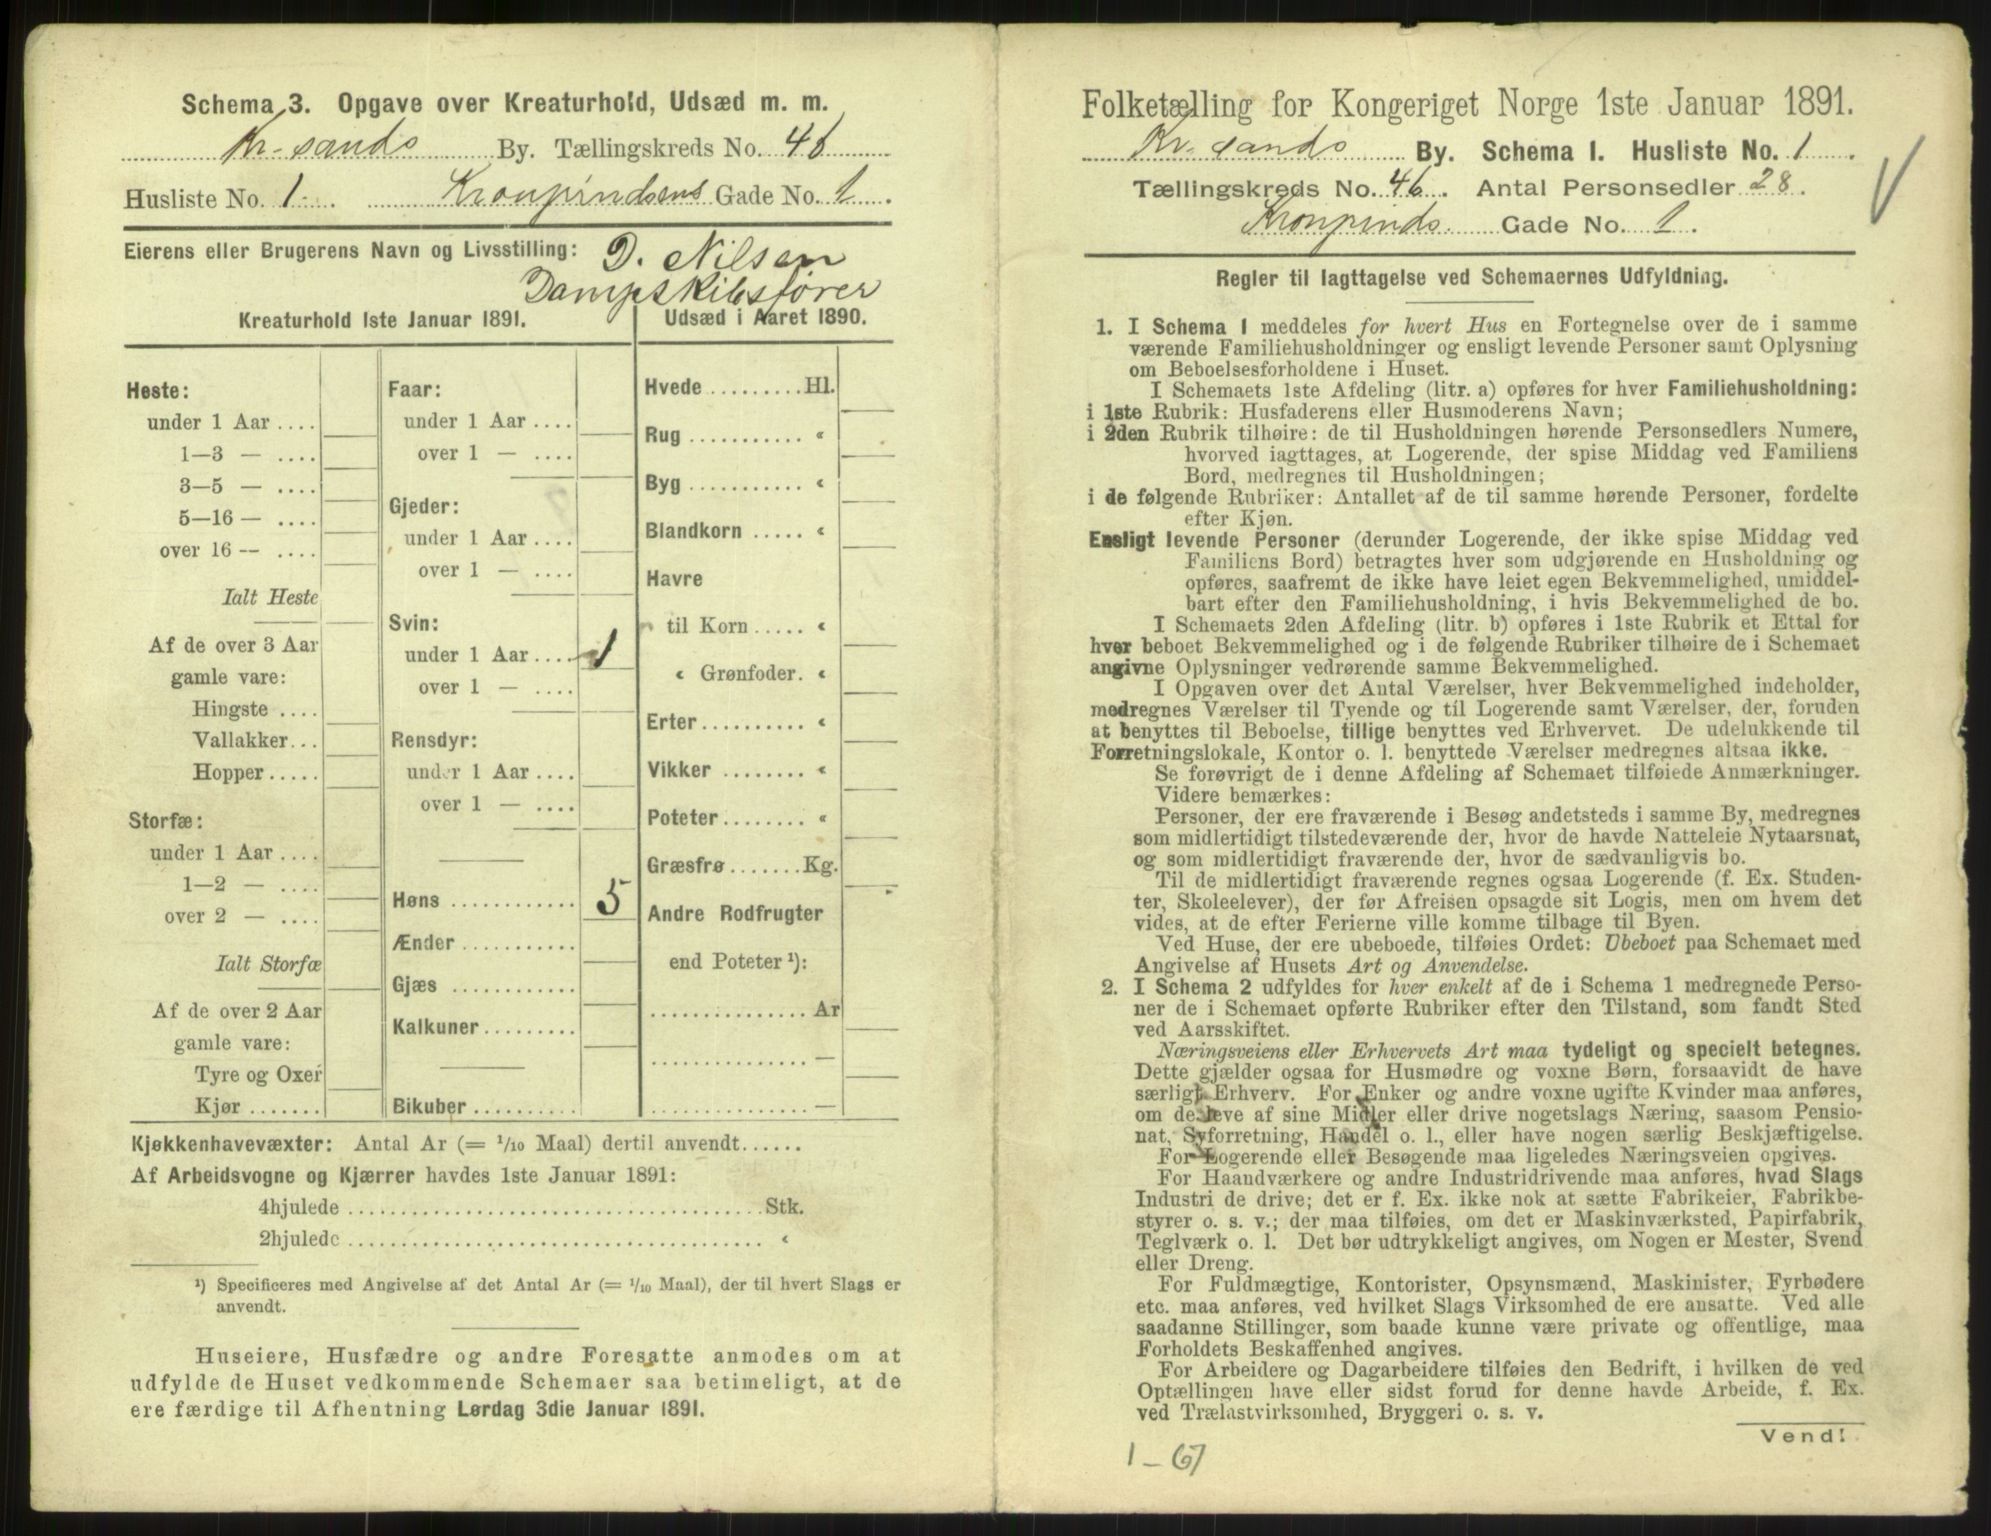 Schema 3. Opgave over Kreaturhold, Udsæd m. m.
Kr-sands By. Tællingskreds No. 46
Husliste No. 1. Kronpindsens Gade No. 1.
Eierens eller Brugerens Navn og Livsstilling: D. Nilsen
Dampskibsfører
Kreaturhold 1ste Januar 1891.
Heste:
under 1 Aar ....
1—3 — ....
3—5 — ....
5—16 — ....
over 16 — ....
Ialt Heste
Af de over 3 Aar
gamle vare:
Hingste ....
Vallakker...
Hopper.....
Storfæ:
under 1 Aar ....
1—2 — ....
over 2 — ....
Ialt Storfæ
Af de over 2 Aar
gamle vare:
Tyre og Oxer
Kjør .......
Faar:
under 1 Aar ....
over 1 — ....
Gjeder:
under 1 Aar ....
over 1 — ....
Svin:
under 1 Aar .... 1
over 1 — ....
Rensdyr:
under 1 Aar ....
over 1 — ....
Høns ............ 5
Ænder ...........
Gjæs ............
Kalkuner.........
Bikuber ..........
Udsæd i Aaret 1890.
Hvede ..........Hl.
Rug ........... «
Byg ........... «
Blandkorn ..... «
Havre
til Korn ..... «
« Grønfoder. «
Erter.......... «
Vikker ........ «
Poteter........ «
Græsfrø .......Kg.
Andre Rodfrugter
end Poteter ¹):
...............Ar
...............—
...............—
Kjøkkenhavevæxter: Antal Ar (= 1/10 Maal) dertil anvendt......
Af Arbeidsvogne og Kjærrer havdes 1ste Januar 1891:
4hjulede ........................................Stk.
2hjulede ........................................ «
¹) Specificeres med Angivelse af det Antal Ar (= 1/10 Maal), der til hvert Slags er
anvendt.
Huseiere, Husfædre og andre Foresatte anmodes om at
udfylde de Huset vedkommende Schemaer saa betimeligt, at de
ere færdige til Afhentning Lørdag 3die Januar 1891.
Folketælling for Kongeriget Norge 1ste Januar 1891.
Kr. sands By. Schema 1. Husliste No. 1
Tællingskreds No. 46. Antal Personsedler 28.
Kronpinds. Gade No. 1.
Regler til Iagttagelse ved Schemaernes Udfyldning.
1. I Schema 1 meddeles for hvert Hus en Fortegnelse over de i samme
værende Familiehusholdninger og ensligt levende Personer samt Oplysning
om Beboelsesforholdene i Huset.
I Schemaets 1ste Afdeling (litr. a) opføres for hver Familiehusholdning:
i 1ste Rubrik: Husfaderens eller Husmoderens Navn;
i 2den Rubrik tilhøire: de til Husholdningen hørende Personsedlers Numere,
hvorved iagttages, at Logerende, der spise Middag ved Familiens
Bord, medregnes til Husholdningen;
i de følgende Rubriker: Antallet af de til samme hørende Personer, fordelte
efter Kjøn.
Ensligt levende Personer (derunder Logerende, der ikke spise Middag ved
Familiens Bord) betragtes hver som udgjørende en Husholdning og
opføres, saafremt de ikke have leiet egen Bekvemmelighed, umiddel-
bart efter den Familiehusholdning, i hvis Bekvemmelighed de bo.
I Schemaets 2den Afdeling (litr. b) opføres i 1ste Rubrik et Ettal for
hver beboet Bekvemmelighed og i de følgende Rubriker tilhøire de i Schemaet
angivne Oplysninger vedrørende samme Bekvemmelighed.
I Opgaven over det Antal Værelser, hver Bekvemmelighed indeholder,
medregnes Værelser til Tyende og til Logerende samt Værelser, der, foruden
at benyttes til Beboelse, tillige benyttes ved Erhvervet. De udelukkende til
Forretningslokale, Kontor o. l. benyttede Værelser medregnes altsaa ikke.
Se forøvrigt de i denne Afdeling af Schemaet tilføiede Anmærkninger.
Videre bemærkes:
Personer, der ere fraværende i Besøg andetsteds i samme By, medregnes
som midlertidigt tilstedeværende der, hvor de havde Natteleie Nytaarsnat,
og som midlertidigt fraværende der, hvor de sædvanligvis bo.
Til de midlertidigt fraværende regnes ogsaa Logerende (f. Ex. Studen-
ter, Skoleelever), der før Afreisen opsagde sit Logis, men om hvem det
vides, at de efter Ferierne ville komme tilbage til Byen.
Ved Huse, der ere ubeboede, tilføies Ordet: Ubeboet paa Schemaet med
Angivelse af Husets Art og Anvendelse.
2. I Schema 2 udfyldes for hver enkelt af de i Schema 1 medregnede Perso-
ner de i Schemaet opførte Rubriker efter den Tilstand, som fandt Sted
ved Aarsskiftet.
Næringsveiens eller Erhvervets Art maa tydeligt og specielt betegnes.
Dette gjælder ogsaa for Husmødre og voxne Børn, forsaavidt de have
særligt Erhverv. For Enker og andre voxne ugifte Kvinder maa anføres,
om de leve af sine Midler eller drive nogetslags Næring, saasom Pensio-
nat, Syforretning, Handel o. l., eller have nogen særlig Beskjæftigelse.
For Logerende eller Besøgende maa ligeledes Næringsveien opgives.
For Haandværkere og andre Industridrivende maa anføres, hvad Slags
Industri de drive; det er f. Ex. ikke nok at sætte Fabrikeier, Fabrikbe-
styrer o. s. v.; der maa tilføies, om det er Maskinværksted, Papirfabrik,
Teglværk o. l. Det bør udtrykkeligt angives, om Nogen er Mester, Svend
eller Dreng.
For Fuldmægtige, Kontorister, Opsynsmænd, Maskinister, Fyrbødere
etc. maa anføres, ved hvilket Slags Virksomhed de ere ansatte. Ved alle
saadanne Stillinger, som baade kunne være private og offentlige, maa
Forholdets Beskaffenhed angives.
For Arbeidere og Dagarbeidere tilføies den Bedrift, i hvilken de ved
Optællingen have eller sidst forud for denne havde Arbeide, f. Ex.
ved Trælastvirksomhed, Bryggeri o. s. v.
Vend!
1-67